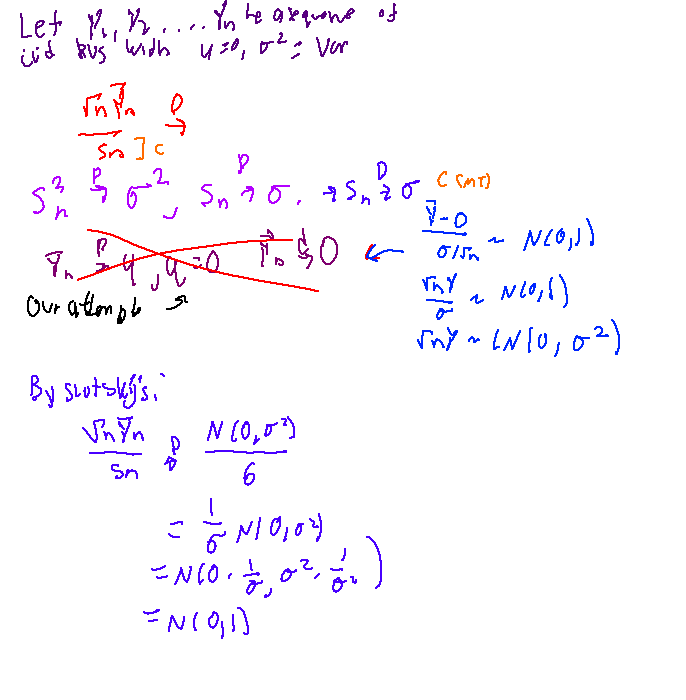 Let Y₁, Y₂ .... Yn be a sequence of
iid RVs with μ=0, σ² = Var
√n Ȳn / Sn ] C D→
Sn² P→ σ², Sn P→ σ. → Sn D→ σ C (MT)
Ȳn P→ μ, μ=0 Ȳn d→ 0
Our attempt →
Ȳ-0 / σ/√n ~ N(0,1)
√nȲ / σ ~ N(0,1)
√nȲ ~ N(0, σ²)
By slutsky's:
√n Ȳn / Sn D→ N(0,σ²) / σ
= 1/σ N(0,σ²)
= N(0 · 1/σ, σ² · 1/σ²)
= N(0,1)